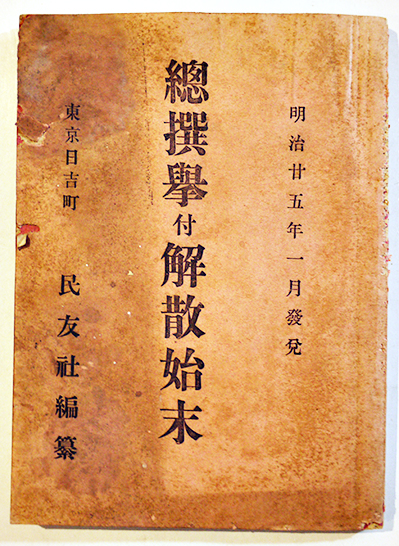 明治廿五年一月發兌
總撰擧付解散始末
東京日吉町 民友社編纂